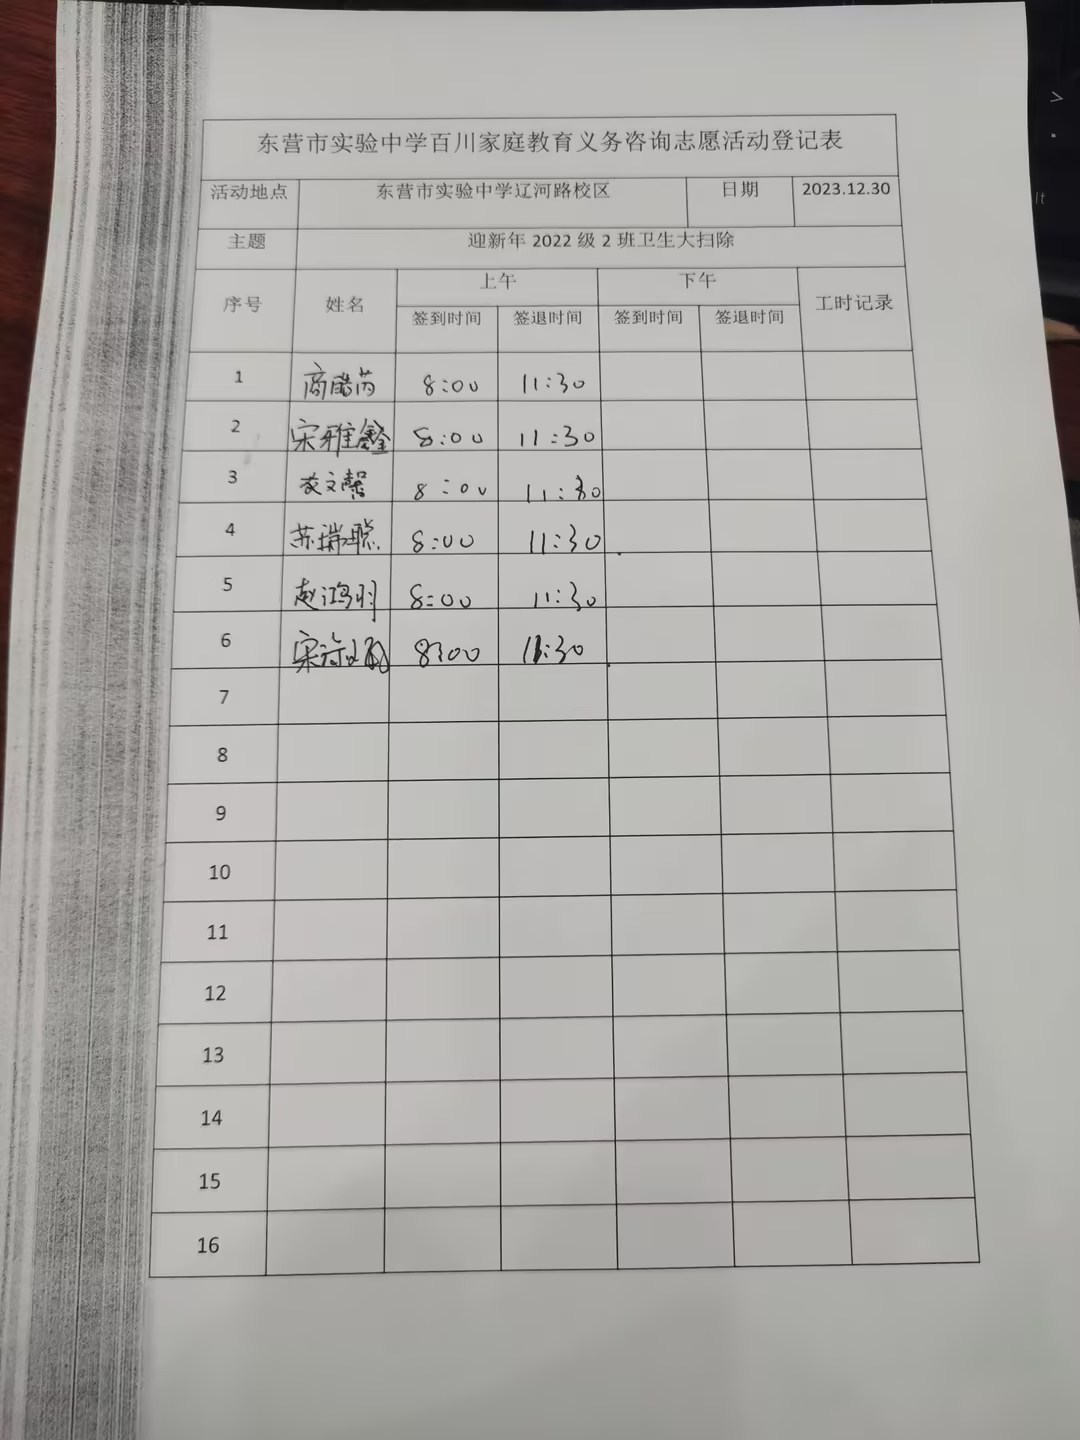 东营市实验中学百川家庭教育义务咨询志愿活动登记表
活动地点 东营市实验中学辽河路校区 日期 2023.12.30
主题 迎新年 2022 级 2 班卫生大扫除
序号 姓名 上午 下午 工时记录
签到时间 签退时间 签到时间 签退时间
1 8:00 11:30
2 宋雅鑫 8:00 11:30
3 文馨 8:00 11:30
4 苏瑞聪 8:00 11:30
5 赵鸿羽 8:00 11:30
6 宋 8:00 11:30
7
8
9
10
11
12
13
14
15
16